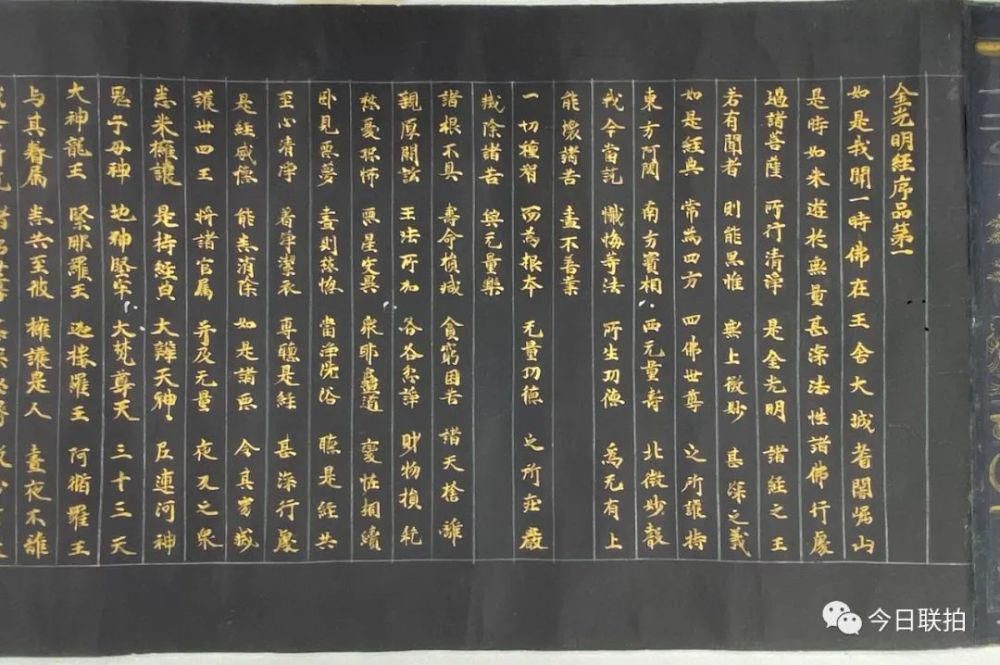 金光明経序品第一
如是我聞一時佛在王舍大城耆闍崛山
是時如来遊於無量甚深法性諸佛行處
過諸菩薩 所行清淨 是金光明 諸経之王
若有聞者 則能思惟 無上微妙 甚深之義
如是経典 常為四方 四佛世尊 之所護持
東方阿閦 南方寶相 西无量壽 北微妙聲
我今當説 懺悔等法 所生功德 為无有上
能壞諸苦 盡不善業
一切種智 而為根本 无量功德 之所莊嚴
滅除諸苦 與无量樂
諸根不具 壽命損減 貧窮困苦 諸天捨離
親厚鬪訟 王法所加 各各忿諍 財物損耗
愁憂恐怖 惡星災異 衆邪蠱道 變怪相續
卧見惡夢 晝則愁惱 當淨洗浴 聽是経典
至心清淨 著淨潔衣 專聽是経 甚深行處
是経威德 能悉消除 如是諸惡 令其寂滅
護世四王 將諸官属 并及无量 夜叉之衆
悉来擁護 是持経者 大辯天神 尼連河神
鬼子母神 地神堅牢 大梵尊天 三十三天
大神龍王 緊那羅王 迦樓羅王 阿脩羅王
與其眷属 悉共至彼 擁護是人 晝夜不離
今日联拍